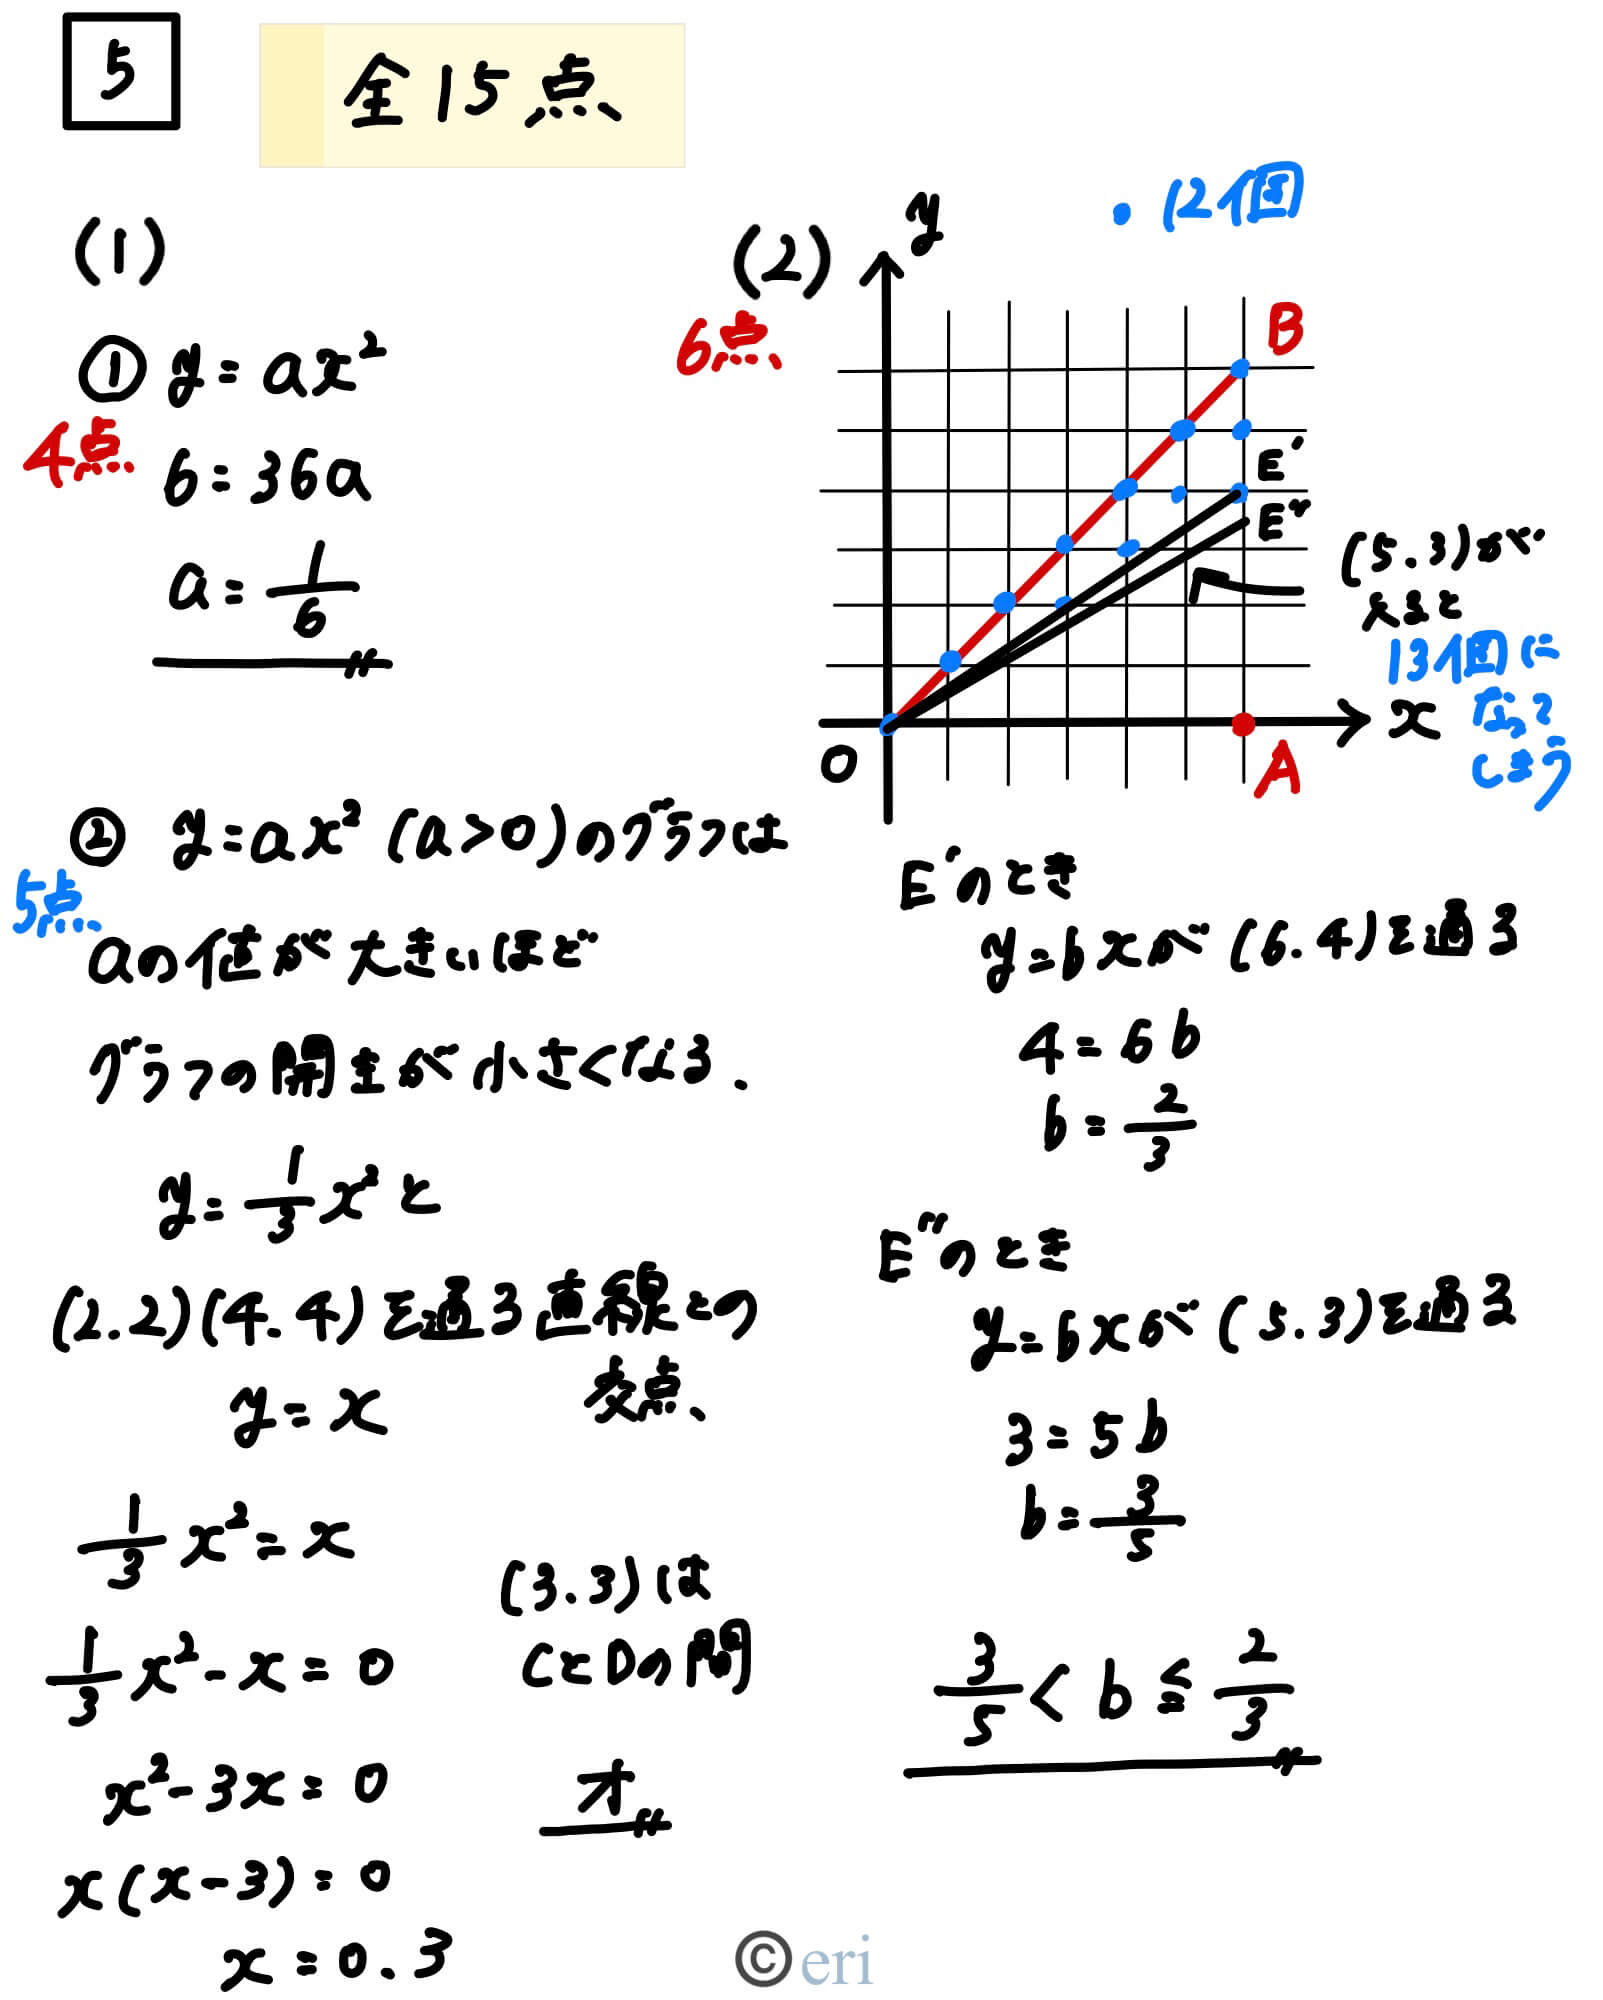 5
全15点
(1)
① y=ax²
4点
6=36a
a=1/6
② y=ax²(a>0)のグラフは
5点
aの値が大きいほど
グラフの開きが小さくなる.
y=1/3x²と
(2.2)(4.4)を通る直線との
交点
y=x
1/3x²=x
1/3x²-x=0
x²-3x=0
x(x-3)=0
x=0.3
(3.3)は
CとDの間
オ
(2)
6点
・12個
y
B
E'
E"
O
A
x
(5.3)が
入ると
13個に
なって
しまう
E'のとき
y=bxが(6.4)を通る
4=6b
b=2/3
E"のとき
y=bxが(5.3)を通る
3=5b
b=3/5
3/5<b≦2/3
©eri